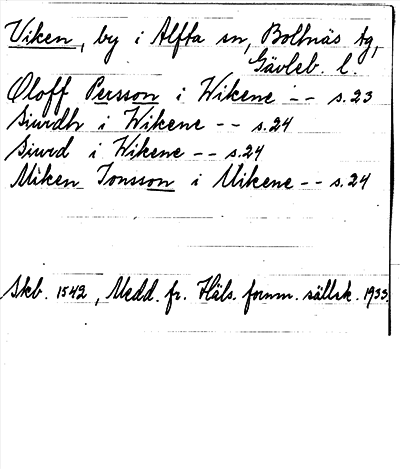 Viken, by i Alfta sn, Bollnäs tg,
Gävleb. l.
Øloff Persson i Wikene -- s.23
Siwrdh i Wikene -- s.24
Siwrd i Wikene -- s.24
Miken Jonsson i Uikene -- s.24
Skb. 1542, Medd. fr. Häls. fornm. sällsk. 1933.